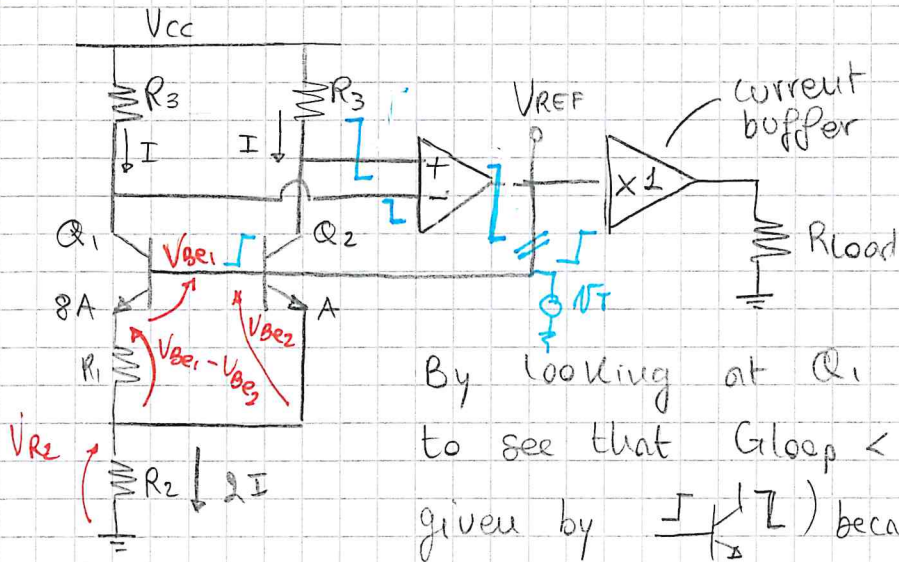 Vcc
R3
R3
I
I
VREF
current
buffer
+
-
×1
Q1
Q2
VBe1
8A
A
VBe2
VT
RLOAD
R1
VBe1 - VBe2
VR2
R2
2I
By looking at Q1
to see that Gloop <
given by ) beca